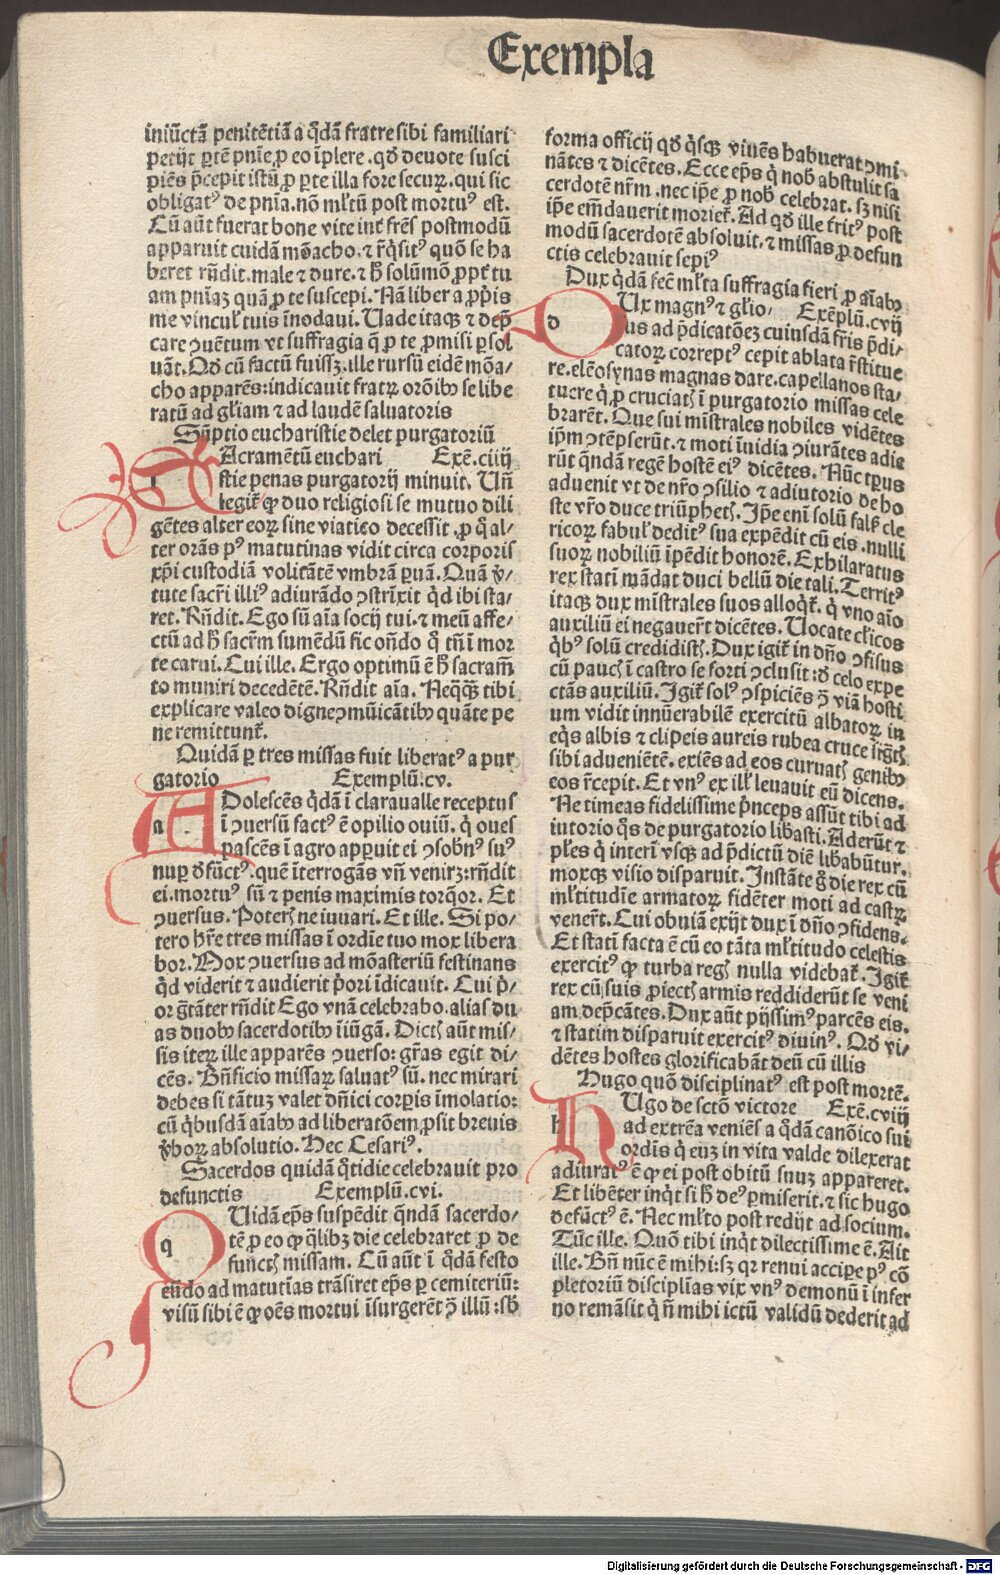 Exempla
iniūctā penitētiā a q̄dā fratre sibi familiari
petijt ꝑtē pnīe ꝓ eo īplere. qd̄ deuote susci
piēs p̄cepit istū ꝓ ꝑte illa fore securꝫ. qui sic
obligatꝰ de pnīa. nō ml̄tū post mortuꝰ est.
Cū aūt fuerat bone vite int̄ fr̄es postmodū
apparuit cuidā mōacho. ⁊ r̄q̄sitꝰ quō se ha
beret rn̄dit. male ⁊ dure. ⁊ h̄ solūmō ꝓpt̄ tu
am pnīaꝫ quā ꝓ te suscepi. Nā liber a ꝓprijs
me vincul̄ tuis īnodaui. Uade itaqꝫ ⁊ dep̄
care ꝯuētum vt suffragia q̄ ꝓ te ꝓmisi ꝑsol
uāt. Qd̄ cū factū fuissꝫ. ille rursū eidē mōa/
cho apparēs: indicauit fratrꝫ orōibꝰ se libe
ratū ad gl̄iam ⁊ ad laudē saluatoris
Sūptio eucharistie delet purgatoriū
SAcramētū euchari Exē.ciiij
stie penas purgatorij minuit. Un̄
legit̄ ꝙ duo religiosi se mutuo dili
gētes alter eorꝫ sine viatico decessit. ꝓ q̄ al/
ter orās pꝰ matutinas vidit circa corporis
xp̄i custodiā volitātē vmbrā ꝑuā. Quā v̄/
tute sacr̄i illiꝰ adiurādo ꝯstrīxit q̄d ibi sta/
ret. Rn̄dit. Ego sū aīa socij tui. ⁊ meū affe/
ctū ad h̄ sacr̄m sumēdū sic on̄do q̄ tn̄ ī mor
te carui. Cui ille. Ergo optimū ē h̄ sacram̄
to muniri decedētē. Rn̄dit aīa. Neq̄qꝫ tibi
explicare valeo digne ꝯmūicātibꝰ quāte pe
ne remittunt̄.
Quidā ꝑ tres missas fuit liberatꝰ a pur
gatorio Exemplū.cv.
ADolescēs q̄dā ī claraualle receptus
ī ꝯuersū factꝰ ē opilio ouiū. q̄ oues
pascēs ī agro apꝑuit ei ꝯsobrīꝰ suꝰ
nup̄ dēfūctꝰ. quē īterrogās vn̄ venirꝫ: rn̄dit
ei. mortuꝰ sū ⁊ penis maximis torq̄or. Et
ꝯuersus. Poteris ne iuuari. Et ille. Si po/
tero hr̄e tres missas ī ordīe tuo mox libera
bor. Mox ꝯuersus ad mōasteriū festinans
q̄d viderit ⁊ audierit p̄ori īdicauit. Cui p̄/
or gr̄āter rn̄dit Ego vnā celebrabo. alias du
as duobꝰ sacerdotibꝰ īiūgā. Dictis aūt mis/
sis iterꝫ ille apparēs ꝯuerso: gr̄as egit di/
cēs. Bn̄ficio missarꝫ saluatꝰ sū. nec mirari
debes si tātuꝫ valet dn̄ici corꝑis īmolatio:
cū q̄busdā aīabꝰ ad liberatōem ꝓsit breuis
v̄borꝫ absolutio. Hec Cesariꝰ.
Sacerdos quidā q̄tidie celebrauit pro
defunctis Exemplū.cvi.
QUidā ep̄s suspēdit q̄ndā sacerdo/
tē ꝓ eo ꝙ q̄libꝫ die celebraret ꝓ de
functis missam. Cū aūt ī q̄dā festo
eūdo ad matutīas trāsiret ep̄s ꝑ cemiteriū:
visū sibi ē ꝙ oēs mortui īsurgerēt ꝯ̄ illū: sb̄
forma officij qd̄ q̄sqꝫ viuēs habuerat ꝯmi
nātes ⁊ dicētes. Ecce ep̄s q̄ nob̄ abstulit sa
cerdotē nr̄m. nec ip̄e ꝓ nob̄ celebrat. sꝫ nisi
ip̄e emēdauerit moriet̄. Ad qd̄ ille fritꝰ post
modū sacerdotē absoluit. ⁊ missas ꝓ defun
ctis celebrauit sepiꝰ
Dux q̄dā fec̄ ml̄ta suffragia fieri ꝓ aīabꝰ
DUx magnꝰ ⁊ gl̄io/ Exēplū.cvij
sus ad p̄dicatōeꝫ cuiusdā fr̄is p̄di/
catorꝫ correptꝰ cepit ablata r̄stitue
re. elēosynas magnas dare. capellanos sta/
tuere q̄ ꝓ cruciatis ī purgatorio missas cele
brarēt. Que sui mīstrales nobiles vidētes
ip̄m ꝯtēpserūt. ⁊ moti īuidia ꝯiurātes adie
rūt q̄ndā regē hostē eiꝰ dicētes. Nūc tꝑus
aduenit vt de nr̄o ꝯsilio ⁊ adiutorio de ho
ste vr̄o duce triūphetis. Ip̄e enī solū fals̄ cle
ricorꝫ fabul̄ deditꝰ sua expēdit cū eis. nulli
suorꝫ nobiliū īpēdit honorē. Exhilaratus
rex statī mādat duci bellū die tali. Territꝰ
itaqꝫ dux mīstrales suos alloq̄t̄. q̄ vno aīo
auxiliū ei negauer̄t dicētes. Uocate cl̄icos
q̄bꝰ solū credidistis. Dux igit̄ in dn̄o ꝯfisus
cū paucis ī castro se forti ꝯclusit: d̄ celo expe
ctās auxiliū. Igit̄ solꝰ ꝯspiciēs ꝯ̄ viā hosti
um vidit innūerabilē exercitū albatorꝫ in
eq̄s albis ⁊ clipeis aureis rubea cruce īsiḡtis
sibi adueniētē. exiēs ad eos curuatis genibꝰ
eos r̄cepit. Et vnꝰ ex ill̄ leuauit eū dicens.
Ne timeas fidelissime p̄nceps assūt tibi ad
iutorio q̄s de purgatorio lib̄asti. Aderūt ⁊
pl̄es q̄ interī vsqꝫ ad p̄dictū diē lib̄abūtur.
moxqꝫ visio disparuit. Instāte g̊ die rex cū
ml̄titudīe armatorꝫ fidēter moti ad castrꝫ
vener̄t. Cui obuiā exijt dux ī dn̄o ꝯfidens.
Et statī facta ē cū eo tāta ml̄titudo celestis
exercitꝰ ꝙ turba regis nulla videbat̄. Igit̄
rex cū suis ꝓiectis armis reddiderūt se veni
am dep̄cātes. Dux aūt pijssimꝰ parcēs eis.
⁊ statim disparuit exercitꝰ diuinꝰ. Qd̄ vi/
dētes hostes glorificabāt deū cū illis
Hugo quō disciplinatꝰ est post mortē.
HUgo de sctō victore Exē.cviij
ad extrēa veniēs a q̄dā canōico sui
ordīs q̄ euꝫ in vita valde dilexerat
adiuratꝰ ē ꝙ ei post obitū suuꝫ appareret.
Et libēter inq̄t si h̄ deꝰ ꝑmiserit. ⁊ sic hugo
defūctꝰ ē. Nec ml̄to post redijt ad socium.
Tūc ille. Quō tibi inq̄t dilectissime ē. Ait
ille. Bn̄ nūc ē mihi: sꝫ qr renui accipe pꝰ cō
pletoriū disciplīas vix vnꝰ demonū ī infer
no remāsit q̄ n̄ mihi ictū validū dederit ad
Digitalisierung gefördert durch die Deutsche Forschungsgemeinschaft - DFG